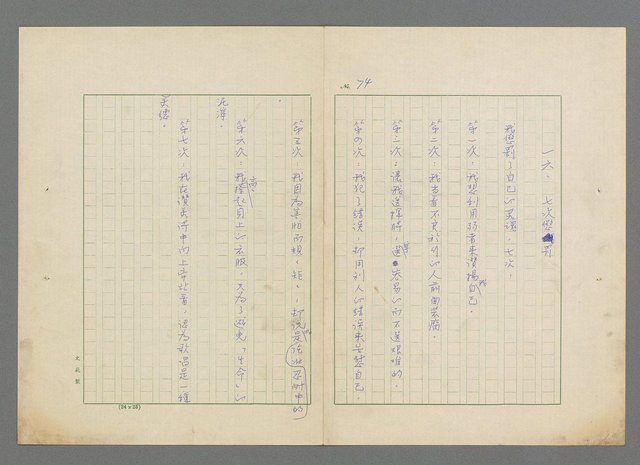 No. 74
一六. 七次懲罰
我懲罰了自己的灵魂,七次,
第一次:我想利用弱者来贊揚我自己。
第二次:我去當不良於行的人前面裝瘸。
第三次:讓我選擇時,選容易的而不選艱難的。
第四次:我犯了錯誤,却用别人的錯誤来安慰自己。
第五次:我因為害怕而規規矩矩,却說是忍耐中的
第六次:我撩高起身上的衣服,只為了避免「生命」的
泥濘.
第七次:我在讚美詩中向上帝站着,認為歌唱是一種
美德.
文苑製
(24×25)